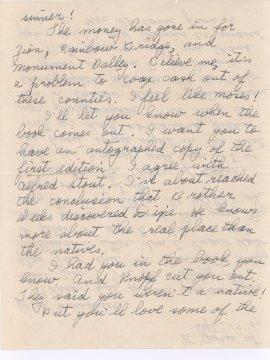 sinner!
The money has gone in for
Zion, Rainbow Bridge, and
Monument Valley. Believe me, it's
a problem to coax cash out of
these counties. I feel like Moses!
I'll let you know when the
book comes out. I want you to
have an autographed copy of the
first edition. I agree with
Alfred Stout. I've about reached
the conclusion that Brother
Weeks discovered He knows
more about the real place than
the natives.
I had you in the book you
know and Knopf cut you out.
They said you weren't a native!
But you'll love some of the